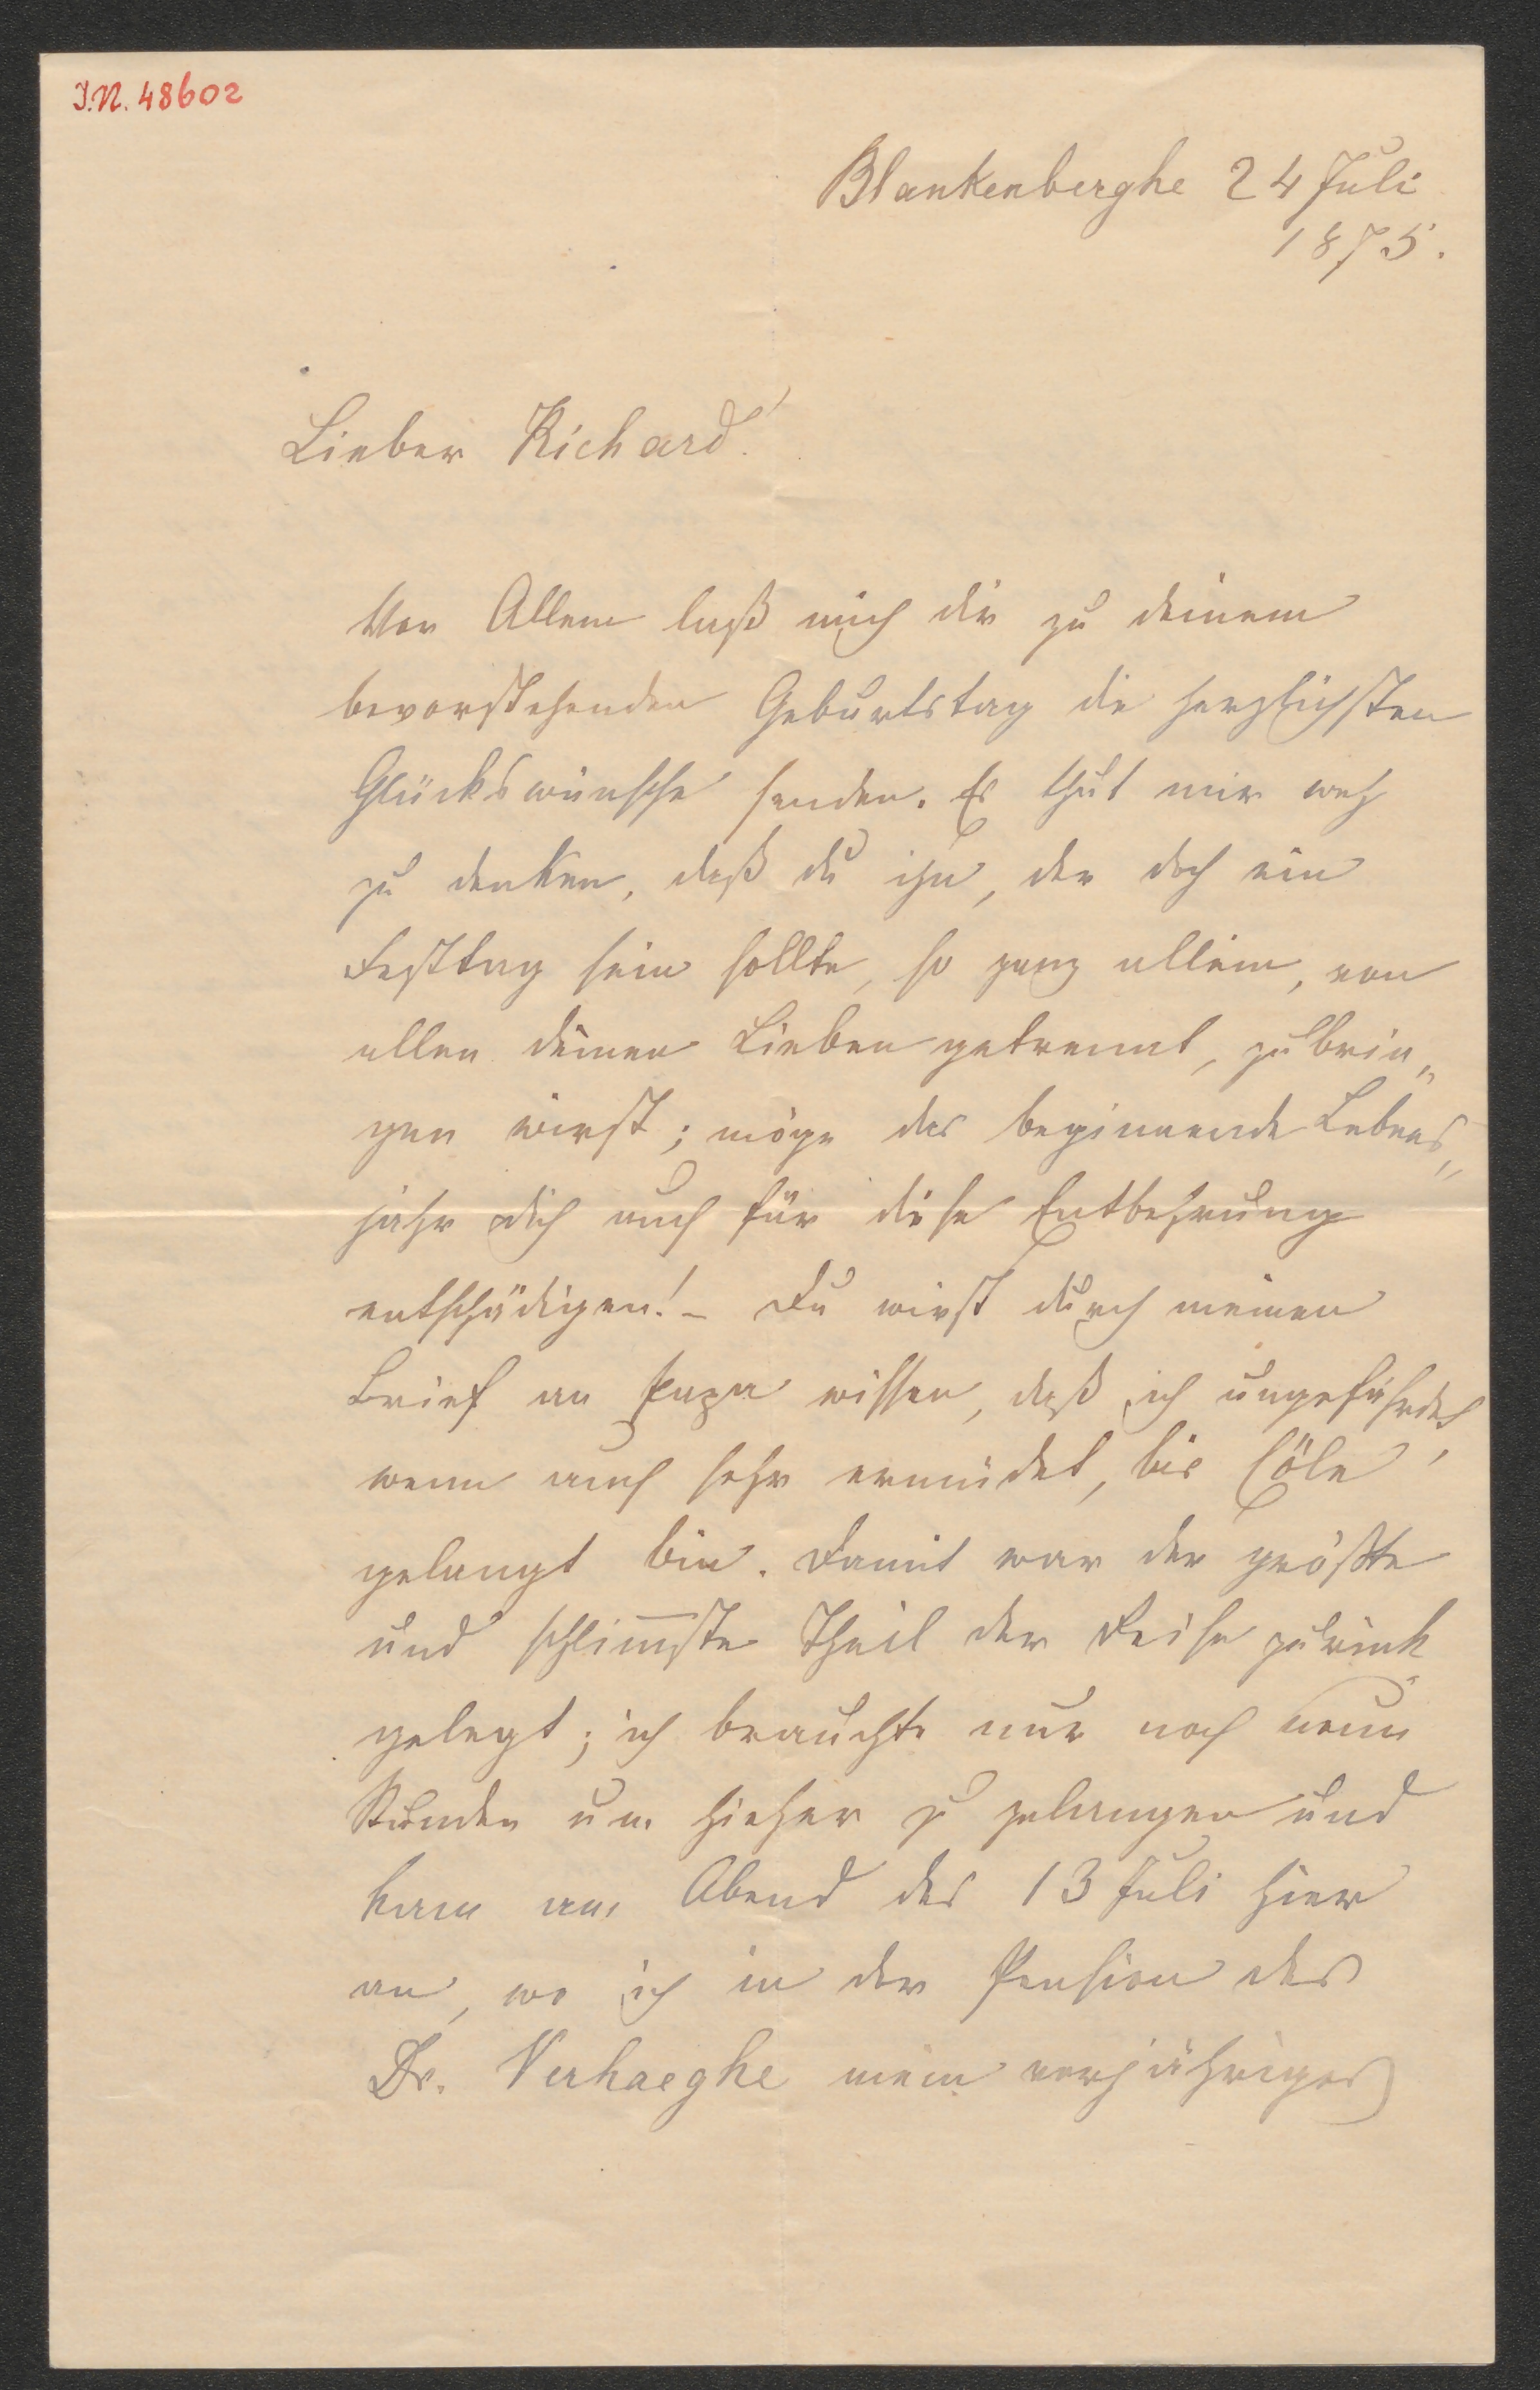 I.N. 48602
Blankenberghe 24 Juli
1875.
Lieber Richard!
Vor Allem laß mich dir zu deinem
bevorstehenden Geburtstag die herzlichsten
Glückswünsche senden. Es thut mir weh
zu denken, daß du ihn, der doch ein
Festtag sein sollte, so ganz allein, von
allen deinen Lieben getrennt, zubrin„
gen wirst; möge das beginnende Lebens„
jahr dich auch für diese Entbehrung
entschädigen! – Du wirst durch meinen
Brief an Papa wissen, daß ich ungefährdet,
wenn auch sehr ermüdet, bis Cöln
gelangt bin. Damit war der größte
und schlim̅ste Theil der Reise zurück
gelegt; ich brauchte nur noch neun
Stunden um hieher zu gelangen und
kam am Abend des 13 Juli hier
an, wo ich in der Pension des
Dr. Verhaeghe mein vorjähriges